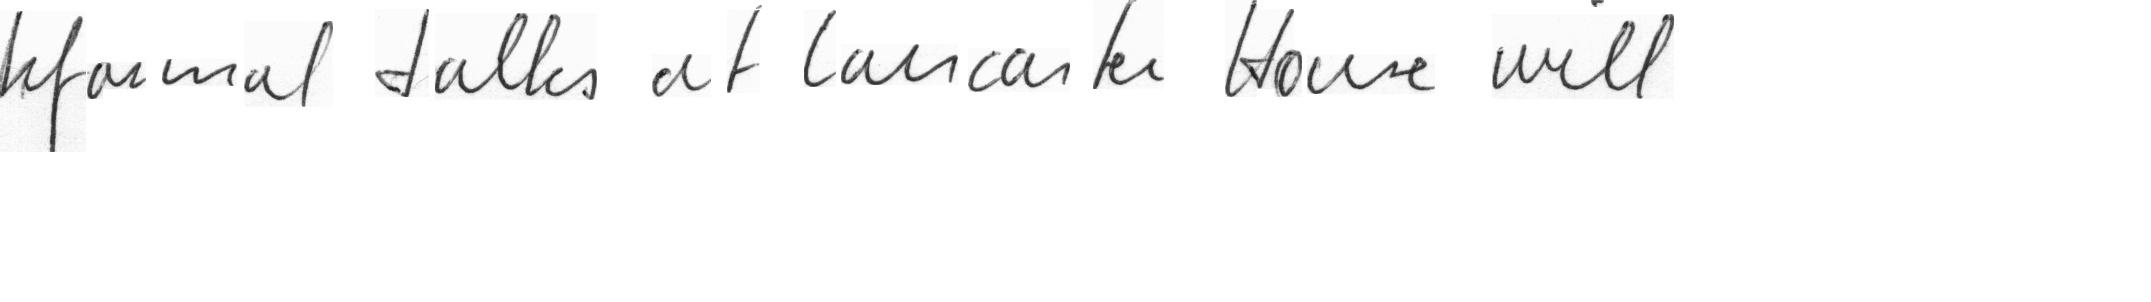 Informal talks at Lancaster House will